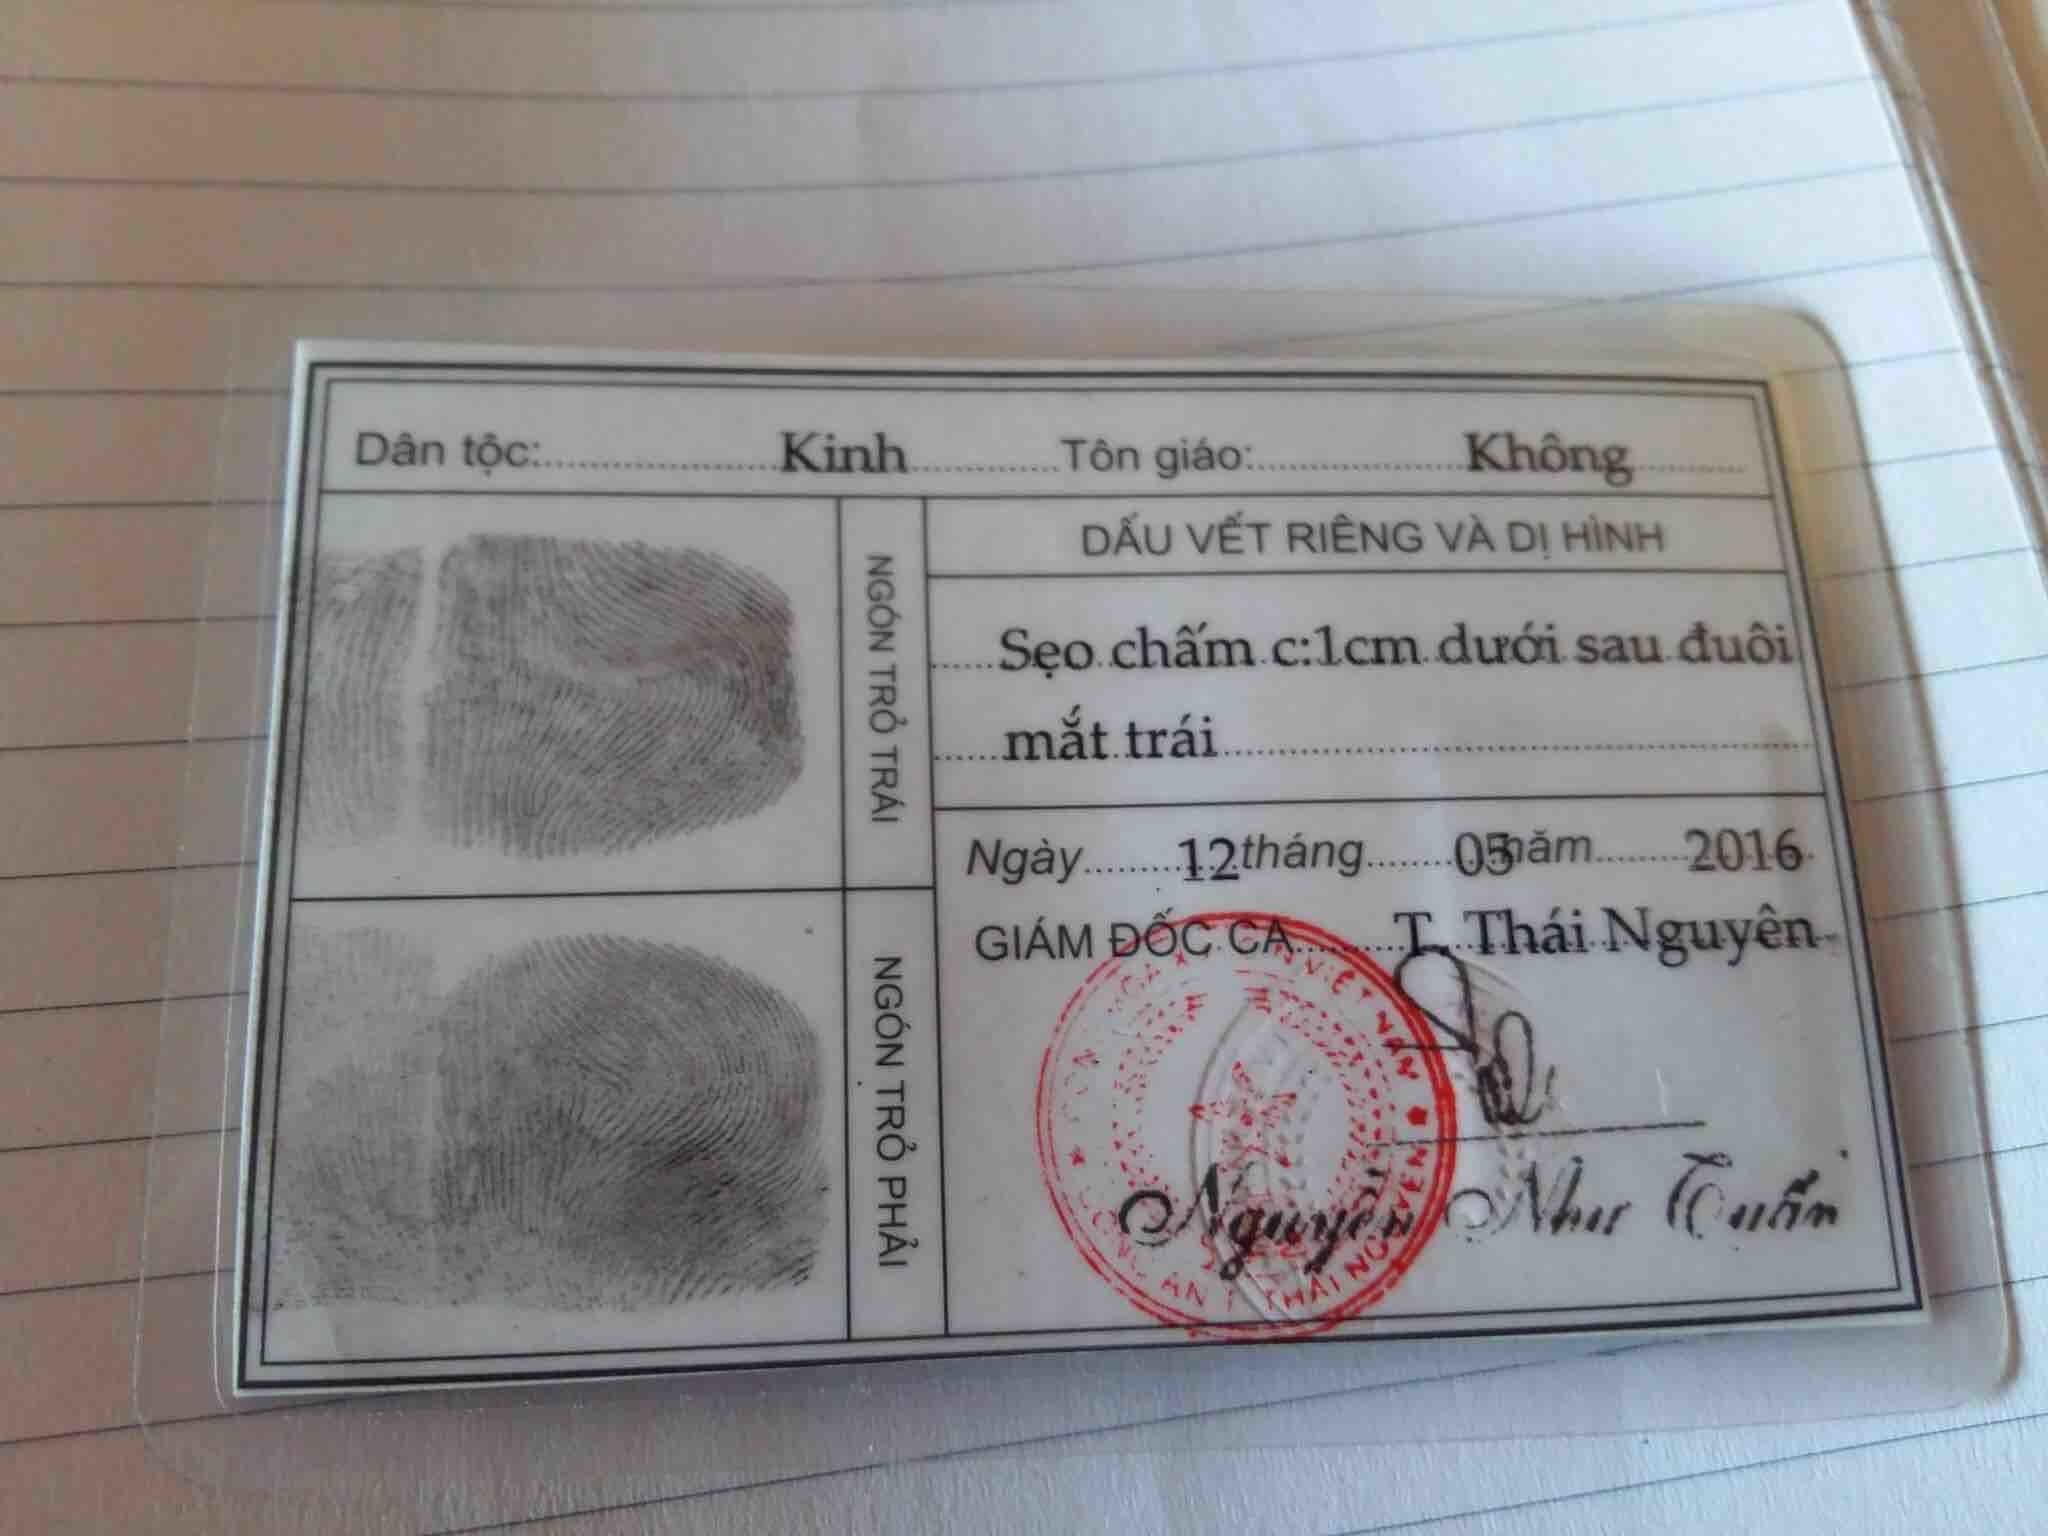 Dân tộc: Kinh Tôn giáo: Không
NGÓN TRỎ TRÁI
NGÓN TRỎ PHẢI
DẤU VẾT RIÊNG VÀ DỊ HÌNH
Sẹo chấm c:1cm dưới sau đuôi
mắt trái
Ngày 12 tháng 05 năm 2016
GIÁM ĐỐC CA T. Thái Nguyên
VIỆT NAM
CÔNG AN T THÁI NGUYÊN
Nguyễn Như Tuấn